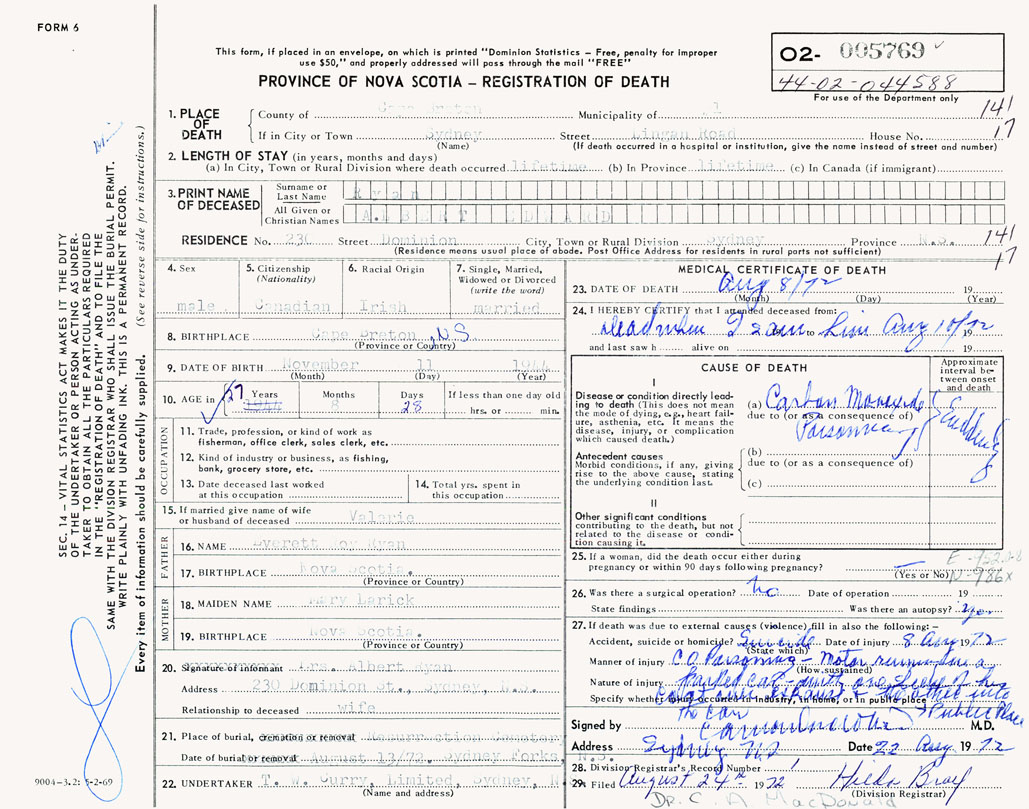 FORM 6
This form, if placed in an envelope, on which is printed "Dominion Statistics – Free, penalty for improper
use $50," and properly addressed will pass through the mail "FREE"
PROVINCE OF NOVA SCOTIA – REGISTRATION OF DEATH
02- 005769
44-02-044588
For use of the Department only
141
17
1. PLACE OF DEATH
County of Cape Breton Municipality of
If in City or Town Sydney Street Lingan Road House No.
(Name) (If death occurred in a hospital or institution, give the name instead of street and number)
2. LENGTH OF STAY (in years, months and days)
(a) In City, Town or Rural Division where death occurred lifetime (b) In Province lifetime (c) In Canada (if immigrant)
3. PRINT NAME OF DECEASED
Surname or Last Name Ryan
All Given or Christian Names ALBERT EDWARD
RESIDENCE No. 230 Street Dominion City, Town or Rural Division Sydney Province N.S.
(Residence means usual place of abode. Post Office Address for residents in rural parts not sufficient)
141
17
4. Sex
male
5. Citizenship (Nationality)
Canadian
6. Racial Origin
Irish
7. Single, Married, Widowed or Divorced (write the word)
married
8. BIRTHPLACE Cape Breton, NS
(Province or Country)
9. DATE OF BIRTH November 11 1944
(Month) (Day) (Year)
10. AGE in 27 Years Months 8 Days 28 If less than one day old hrs. or min.
OCCUPATION
11. Trade, profession, or kind of work as
fisherman, office clerk, sales clerk, etc.
12. Kind of industry or business, as fishing,
bank, grocery store, etc.
13. Date deceased last worked
at this occupation
14. Total yrs. spent in
this occupation
15. If married give name of wife
or husband of deceased Valarie
FATHER
16. NAME Everett Roy Ryan
17. BIRTHPLACE Nova Scotia.
(Province or Country)
MOTHER
18. MAIDEN NAME Mary Larick
19. BIRTHPLACE Nova Scotia.
(Province or Country)
20. Signature of informant Mrs. Albert Ryan
Address 230 Dominion St., Sydney, N.S.
Relationship to deceased wife
21. Place of burial, cremation or removal Resurrection Cemetary
Date of burial or removal August 13/72 Sydney Forks, N.S.
22. UNDERTAKER T. W. Curry, Limited, Sydney, N.S.
(Name and address)
MEDICAL CERTIFICATE OF DEATH
23. DATE OF DEATH Aug 8/72 19
(Month) (Day) (Year)
24. I HEREBY CERTIFY that I attended deceased from:
dead when I saw him Aug 10/72 19
and last saw h alive on 19
CAUSE OF DEATH
Approximate interval between onset and death
I
Disease or condition directly leading to death (This does not mean
the mode of dying, e.g., heart failure, asthenia, etc. It means the
disease, injury, or complication
which caused death.)
(a) Carbon Monoxide
due to (or as a consequence of)
Poisoning
Suddenly
Antecedent causes
Morbid conditions, if any, giving
rise to the above cause, stating
the underlying condition last.
(b)
due to (or as a consequence of)
(c)
II
Other significant conditions
contributing to the death, but not
related to the disease or condition causing it.
25. If a woman, did the death occur either during
pregnancy or within 90 days following pregnancy?
(Yes or No)
N-986X
26. Was there a surgical operation? no Date of operation 19
State findings Was there an autopsy? yes
27. If death was due to external causes (violence) fill in also the following: –
Accident, suicide or homicide? Suicide Date of injury 8 Aug 1972
(State which)
Manner of injury CO Poisoning – Motor running in a
(How sustained)
Nature of injury parked car – with one sleeve of his
Specify whether injury occurred in industry, in home, or in public place
coat over exhaust & the other into
the car
Public Place
Signed by M.D.
Address Sydney NS Date 22 Aug 1972
28. Division Registrar's Record Number
29. Filed August 24th 1972 Hilda Bray
(Division Registrar)
Dr. C. A. MacDonald
SEC. 14 – VITAL STATISTICS ACT MAKES IT THE DUTY
OF THE UNDERTAKER OR PERSON ACTING AS UNDERTAKER TO OBTAIN ALL THE PARTICULARS REQUIRED
IN THE "REGISTRATION OF DEATH" AND TO FILE THE
SAME WITH THE DIVISION REGISTRAR WHO SHALL ISSUE THE BURIAL PERMIT.
WRITE PLAINLY WITH UNFADING INK. THIS IS A PERMANENT RECORD.
Every item of information should be carefully supplied. (See reverse side for instructions.)
9004-3.2: 5-2-69